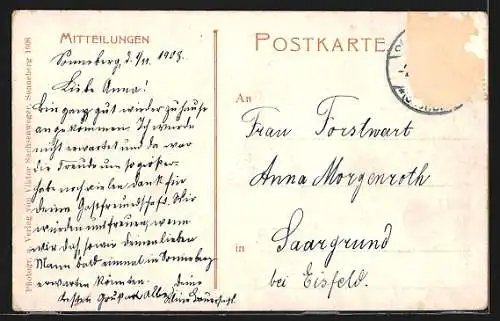 MITTEILUNGEN
Sonneberg, d. 8/11. 1908.
Liebe Anna!
Bin ganz gut wieder zu hause
angekommen. Ich wurde
nicht erwartet und da war
die Freude um so größer.
habe noch vielen Dank für
deine Gastfreundschaft. Wir
würden uns freuen, wenn
wir dich, sowie deinen lieben
Mann bald einmal in Sonneberg
erwarten könnten.
deine
besten Gruß an Alle
Photogr. u. Verlag von Viktor Sachsenweger, Sonneberg 1908
POSTKARTE
An
Frau Forstwart
Anna Morgenroth
in
Saargrund
bei Eisfeld.